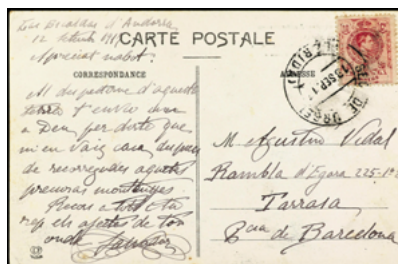 Les Escaldes d'Andorra
12 setembre 191
Apreciat nebot:
CARTE POSTALE
CORRESPONDANCE
ADRESSE
Al despedirme d'aquesta
terra t'envio un
a Deu per dirte que
m'en vaig cap
de recorregudes aquestes
montanyes.
Recor a tots i tu
rep els afectes de ton
oncle Salvador
SEO DE URGEL (LERIDA)
13 SEP 1
M Agustin Vidal
Rambla d'Egara 225-1º
Tarrasa
Bcia de Barcelona